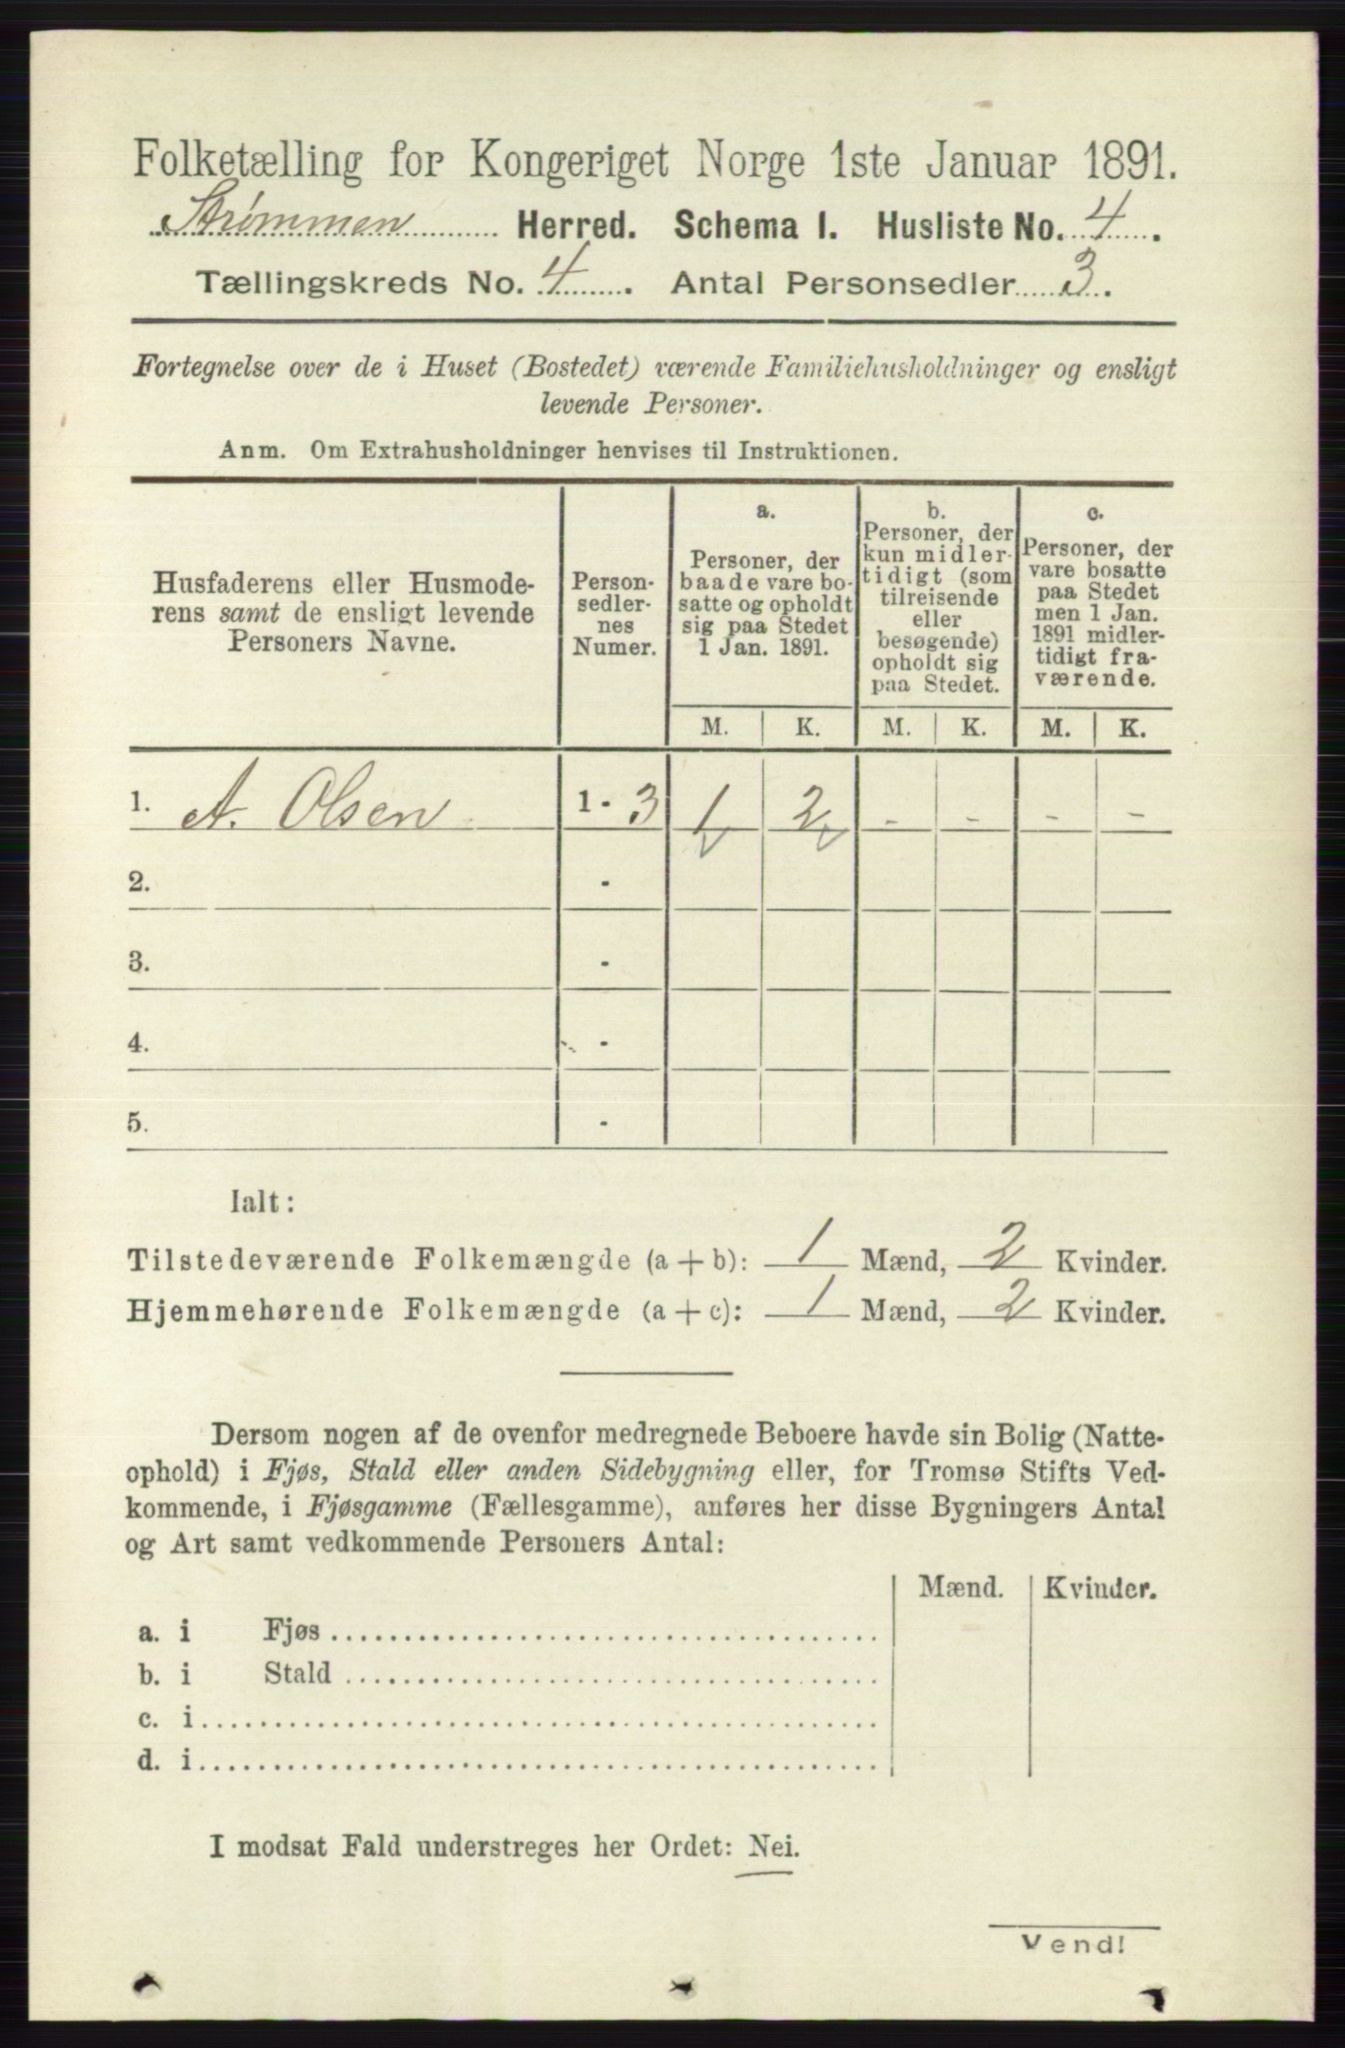 Folketælling for Kongeriget Norge 1ste Januar 1891.
Strømmen Herred. Schema I. Husliste No. 4.
Tællingskreds No. 4. Antal Personsedler 3.
Fortegnelse over de i Huset (Bostedet) værende Familiehusholdninger og ensligt
levende Personer.
Anm. Om Extrahusholdninger henvises til Instruktionen.
Husfaderens eller Husmode-
rens samt de ensligt levende
Personers Navne.
Person-
sedler-
nes
Numer.
a.
Personer, der
baade vare bo-
satte og opholdt
sig paa Stedet
1 Jan. 1891.
b.
Personer, der
kun midler-
tidigt (som
tilreisende
eller
besøgende)
opholdt sig
paa Stedet.
c.
Personer, der
vare bosatte
paa Stedet
men 1 Jan.
1891 midler-
tidigt fra-
værende.
M. K. M. K. M. K.
1. A. Olsen 1 - 3 1 2 - - - -
2. -
3. -
4. -
5. -
Ialt:
Tilstedeværende Folkemængde (a + b): 1 Mænd, 2 Kvinder.
Hjemmehørende Folkemængde (a + c): 1 Mænd, 2 Kvinder.
Dersom nogen af de ovenfor medregnede Beboere havde sin Bolig (Natte-
ophold) i Fjøs, Stald eller anden Sidebygning eller, for Tromsø Stifts Ved-
kommende, i Fjøsgamme (Fællesgamme), anføres her disse Bygningers Antal
og Art samt vedkommende Personers Antal:
Mænd. Kvinder.
a. i Fjøs
b. i Stald
c. i
d. i
I modsat Fald understreges her Ordet: Nei.
Vend!